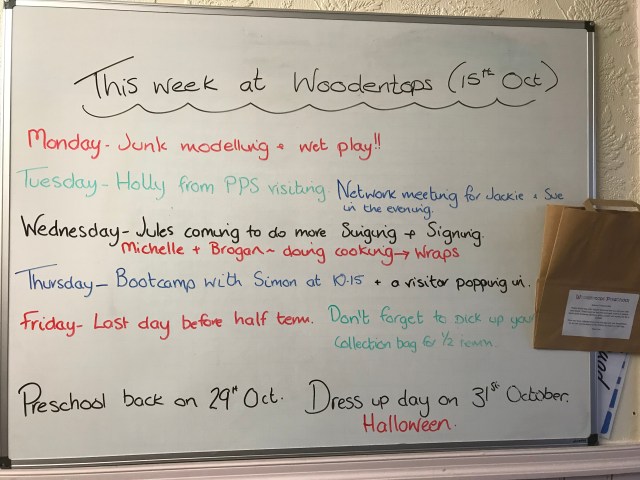 This week at Woodentops (15th Oct)
Monday - Junk modelling + wet play!!
Tuesday - Holly from PPS visiting. Network meeting for Jackie + Sue
in the evening.
Wednesday - Jules coming to do more Singing + Signing.
Michelle + Brogan ~ doing cooking → wraps
Thursday - Bootcamp with Simon at 10.15 + a visitor popping in.
Friday - Last day before half term. Don't forget to pick up your
collection bag for 1/2 term.
Preschool back on 29th Oct. Dress up day on 31st October.
Halloween.